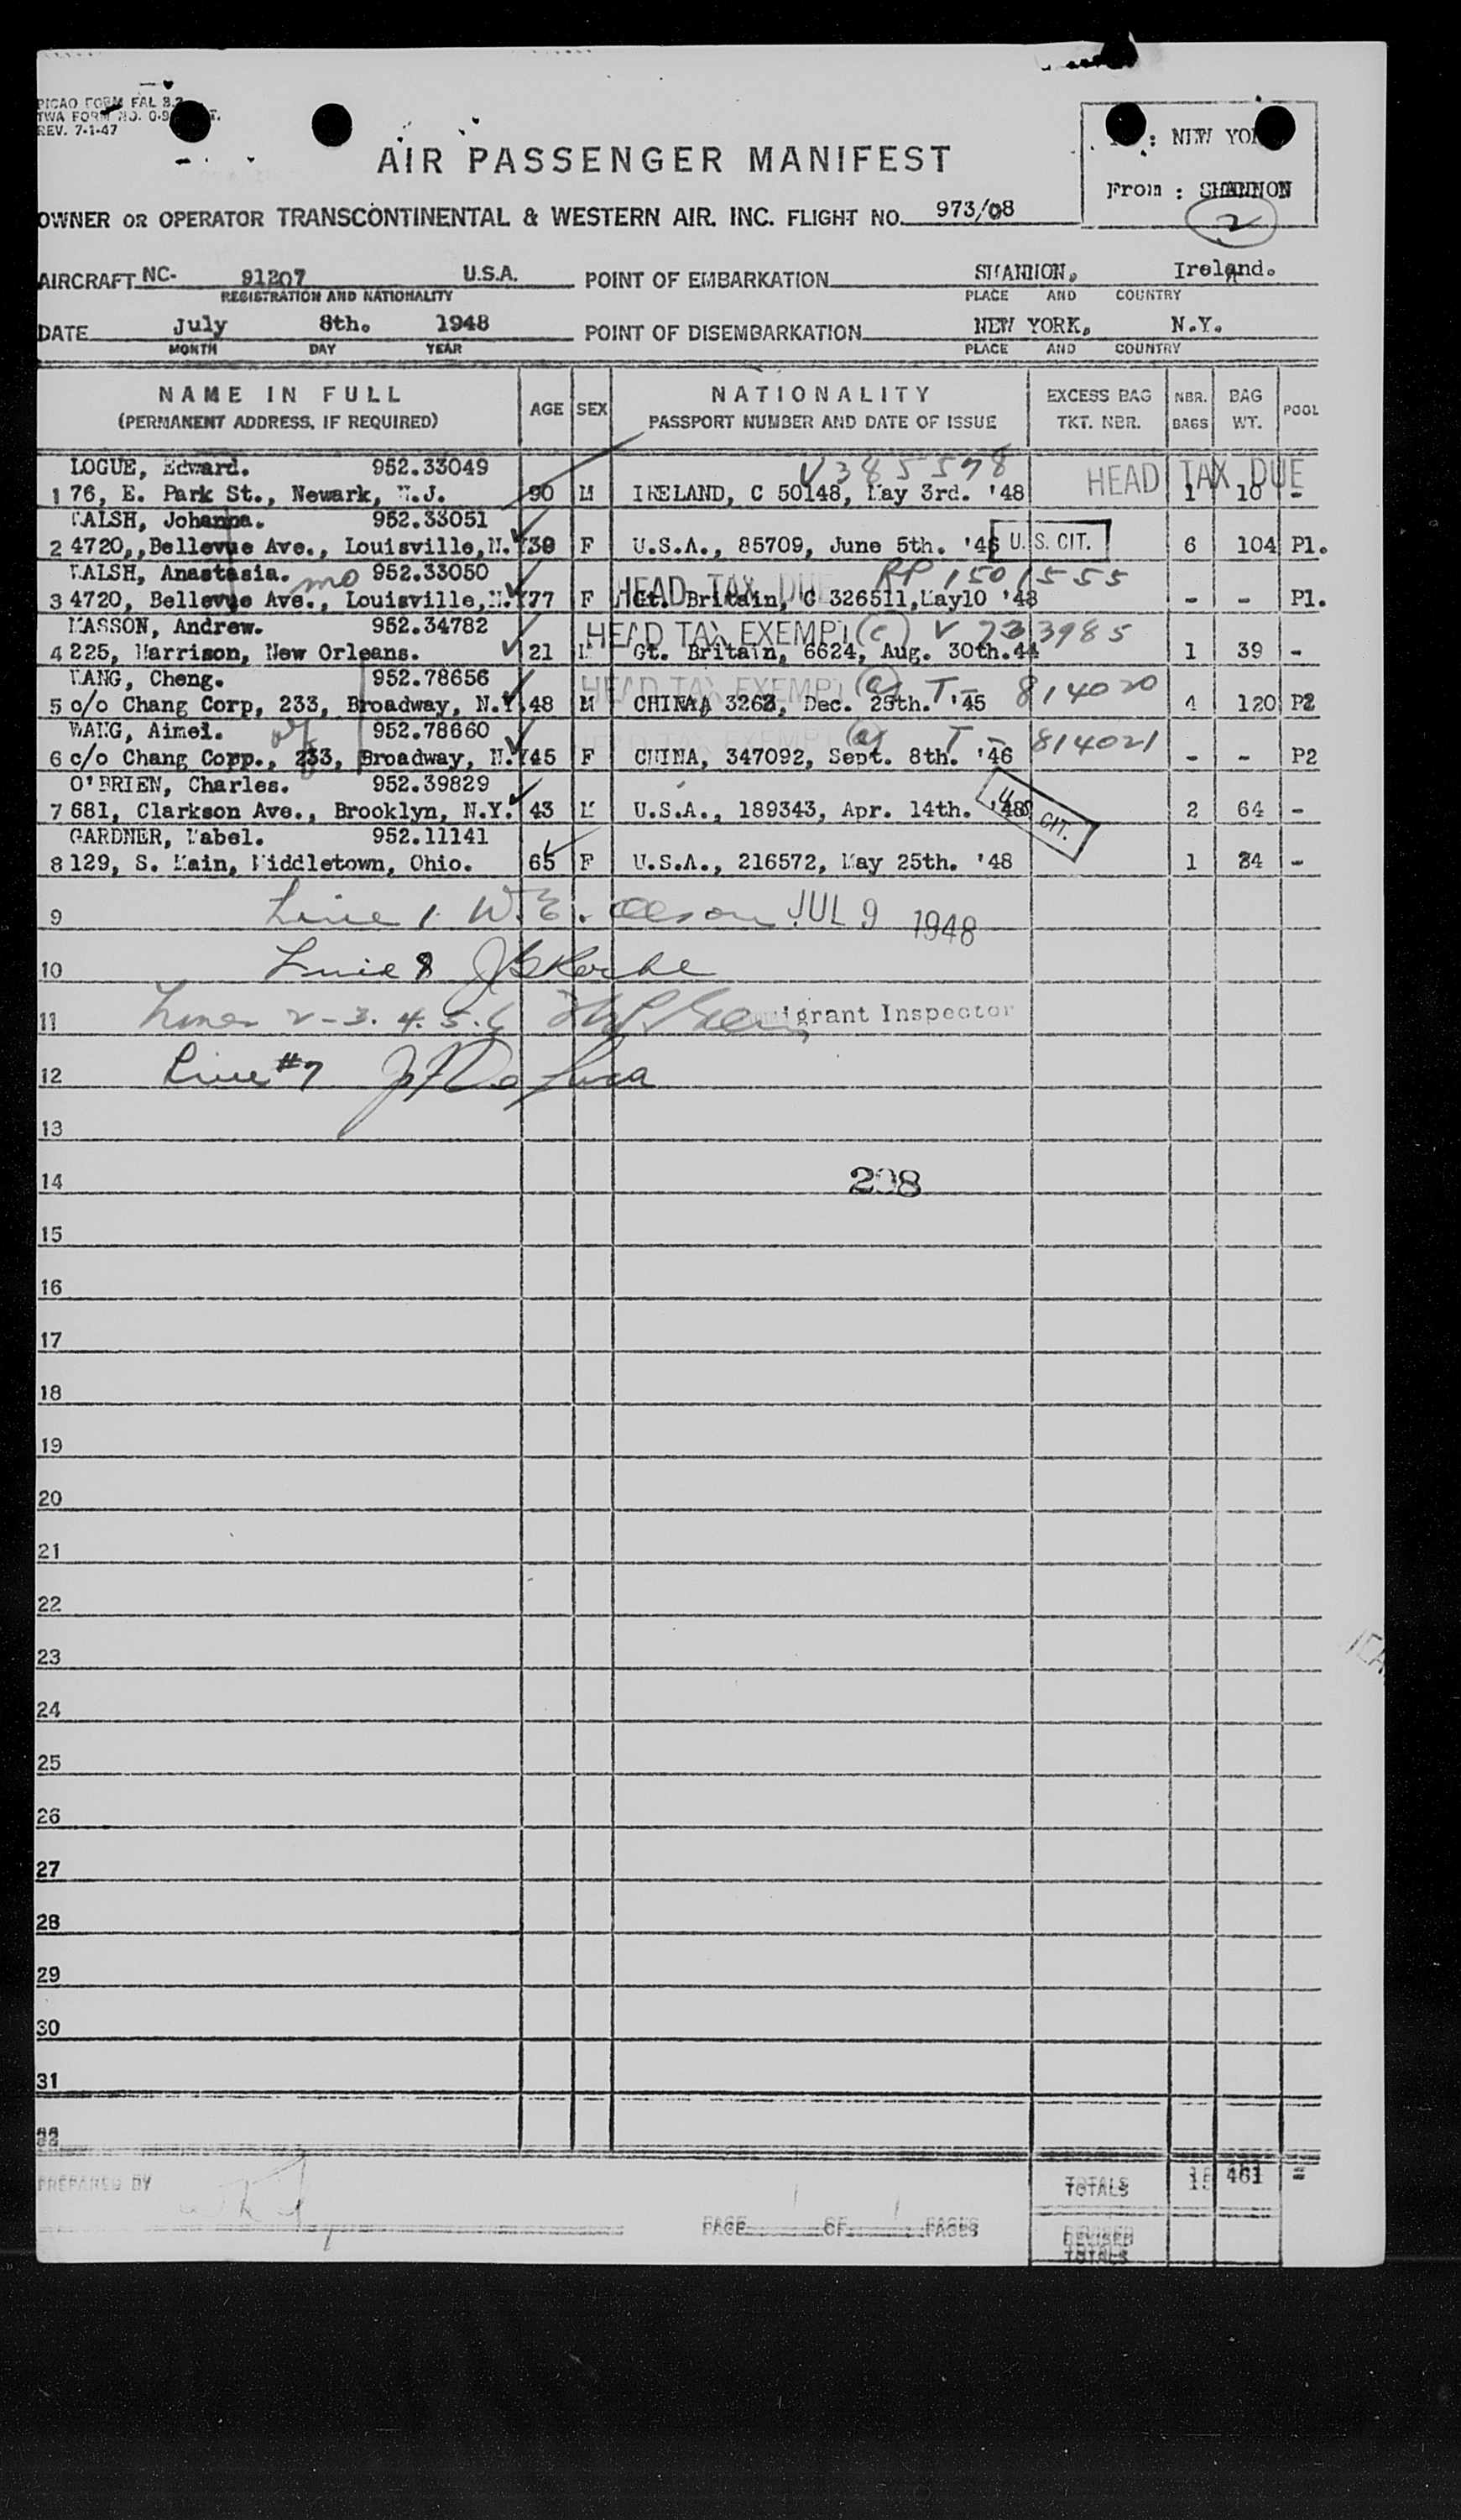 PICAO FORM FAL 3.2
TWA FORM NO. 0-9 T.
REV. 7-1-47
: NEW YOR
From : SHANNON
2
AIR PASSENGER MANIFEST
OWNER OR OPERATOR TRANSCONTINENTAL & WESTERN AIR. INC. FLIGHT NO. 973/08
AIRCRAFT NC- 91207 U.S.A. POINT OF EMBARKATION SHANNON, Ireland.
REGISTRATION AND NATIONALITY PLACE AND COUNTRY
DATE July 8th. 1948 POINT OF DISEMBARKATION NEW YORK, N.Y.
MONTH DAY YEAR PLACE AND COUNTRY
NAME IN FULL AGE SEX NATIONALITY EXCESS BAG NBR. BAG POOL
(PERMANENT ADDRESS, IF REQUIRED) PASSPORT NUMBER AND DATE OF ISSUE TKT. NBR. BAGS WT.
LOGUE, Edward. 952.33049 V385578 HEAD TAX DUE
1 76, E. Park St., Newark, N.J. 90 M IRELAND, C 50148, May 3rd. '48 1 10 -
WALSH, Johanna. 952.33051
2 4720,,Bellevue Ave., Louisville,N.Y 30 F U.S.A., 85709, June 5th. '46 U.S. CIT. 6 104 P1.
WALSH, Anastasia. mo 952.33050 HEAD TAX DUE RP 1501555
3 4720, Bellevue Ave., Louisville,N.Y 77 F Gt. Britain, C 326511,May10 '48 - - P1.
MASSON, Andrew. 952.34782 HEAD TAX EXEMPT (c) V 733985
4 225, Harrison, New Orleans. 21 M Gt. Britain, 6624, Aug. 30th.44 1 39 -
WANG, Cheng. 952.78656 HEAD TAX EXEMPT (a) T- 814020
5 c/o Chang Corp, 233, Broadway, N.Y. 48 M CHINA, 3262, Dec. 29th. '45 4 120 P2
WANG, Aimei. 952.78660 HEAD TAX EXEMPT (a) T- 814021
6 c/o Chang Corp., 233, Broadway, N.Y 45 F CHINA, 347092, Sept. 8th. '46 - - P2
O'BRIEN, Charles. 952.39829
7 681, Clarkson Ave., Brooklyn, N.Y. 43 M U.S.A., 189343, Apr. 14th. '48 U.S. CIT. 2 64 -
GARDNER, Mabel. 952.11141
8 129, S. Main, Middletown, Ohio. 65 F U.S.A., 216572, May 25th. '48 1 24 -
9 Line 1. W.E. Olson JUL 9 1948
10 Line 8
11 Lines 2-3.4.5.6 Immigrant Inspector
12 Line #7 De Luca
13
14 208
15
16
17
18
19
20
21
22
23
24
25
26
27
28
29
30
31
32
PREPARED BY TOTALS 15 461 =
PAGE 1 OF 1 PAGES REVISED
TOTALS